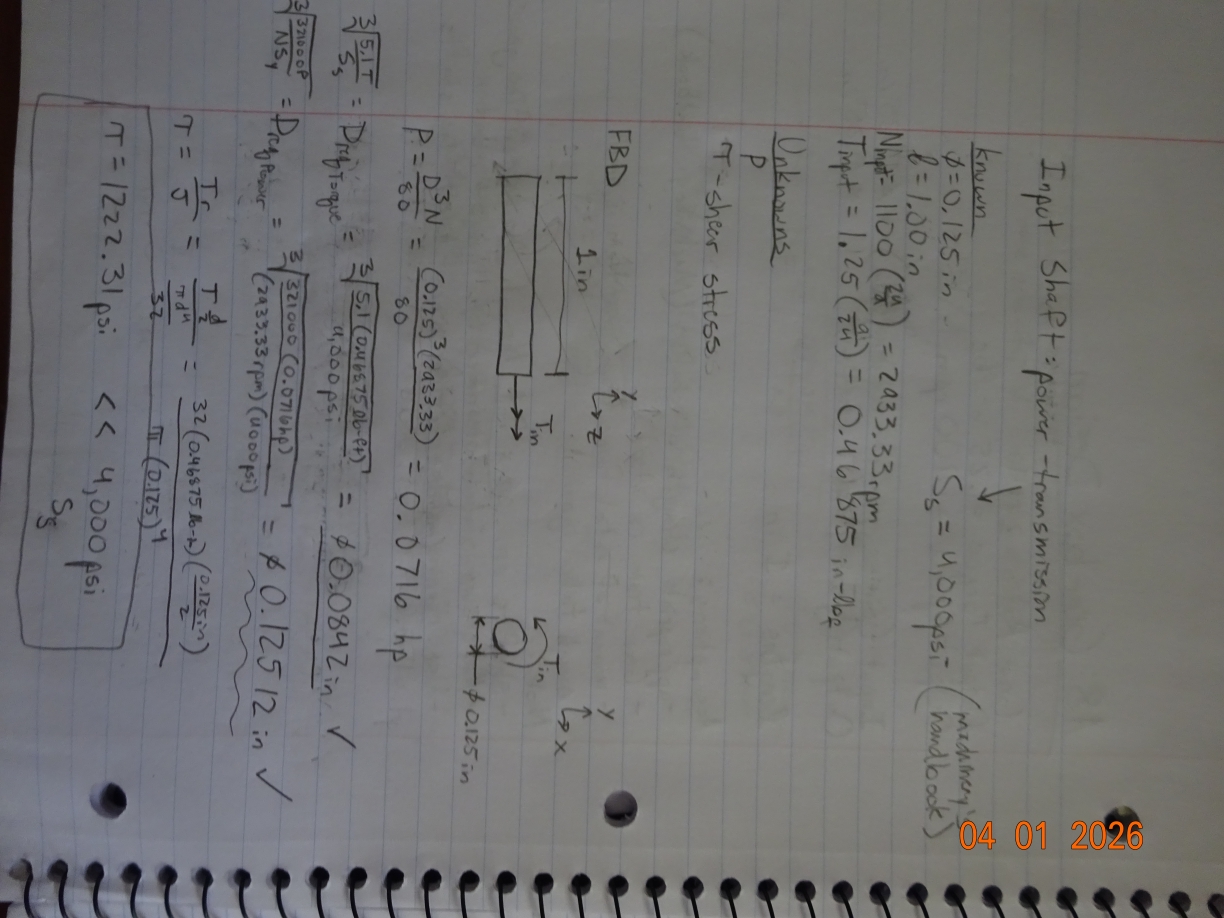 Input Shaft: power-transmission
known
φ=0.125 in
ℓ=1.00 in
Ss = 4,000psi - (machinery's handbook)
Ninput = 1100 (24/9) = 2933.33 rpm
Tinput = 1.25 (9/24) = 0.46875 in-lbf
Unknowns
P
τ-shear stress
FBD
1in
Y
Z
Tin
Tin
Y
X
φ0.125in
P = D³N/80 = (0.125)³(2933.33)/80 = 0.0716 hp
∛(5.1T/Ss) = Dreq Torque = ∛(5.1(0.46875 lb-ft)/4,000psi) = φ0.0842in ✓
∛(321000P/NSs) = Dreq Power = ∛(321000(0.0716hp)/(2933.33rpm)(4000psi)) = φ0.12512in ✓
τ = Tr/J = T d/2 / πd⁴/32 = 32(0.46875 lb-in)(0.125in/2) / π(0.125)⁴
τ = 1222.31psi << 4,000psi
Ss
04 01 2026